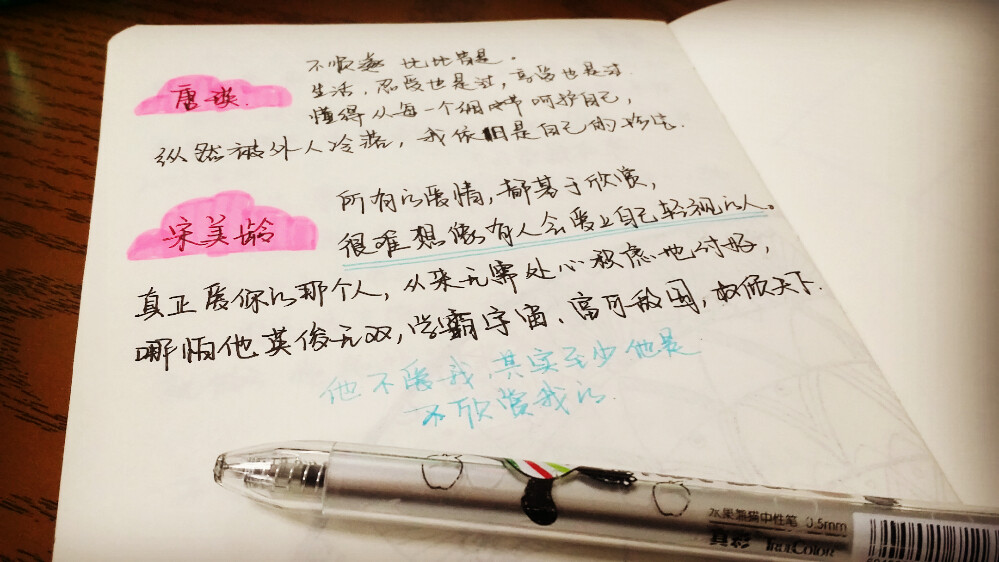 唐瑛.
不顺遂 比比皆是。
生活,忍受也是过,享受也是过.
懂得从每一个细节呵护自己,
纵然被外人冷落,我依旧是自己的珍宝.
宋美龄
所有的爱情,都基于欣赏,
很难想像有人会爱上自己轻视的人。
真正爱你的那个人,从来无需处心积虑地讨好,
哪怕他英俊无双,学霸宇宙、富可敌国,权倾天下.
他不爱我,其实至少他是
不欣赏我的.
水果熊猫中性笔 0.5mm
TrueColor